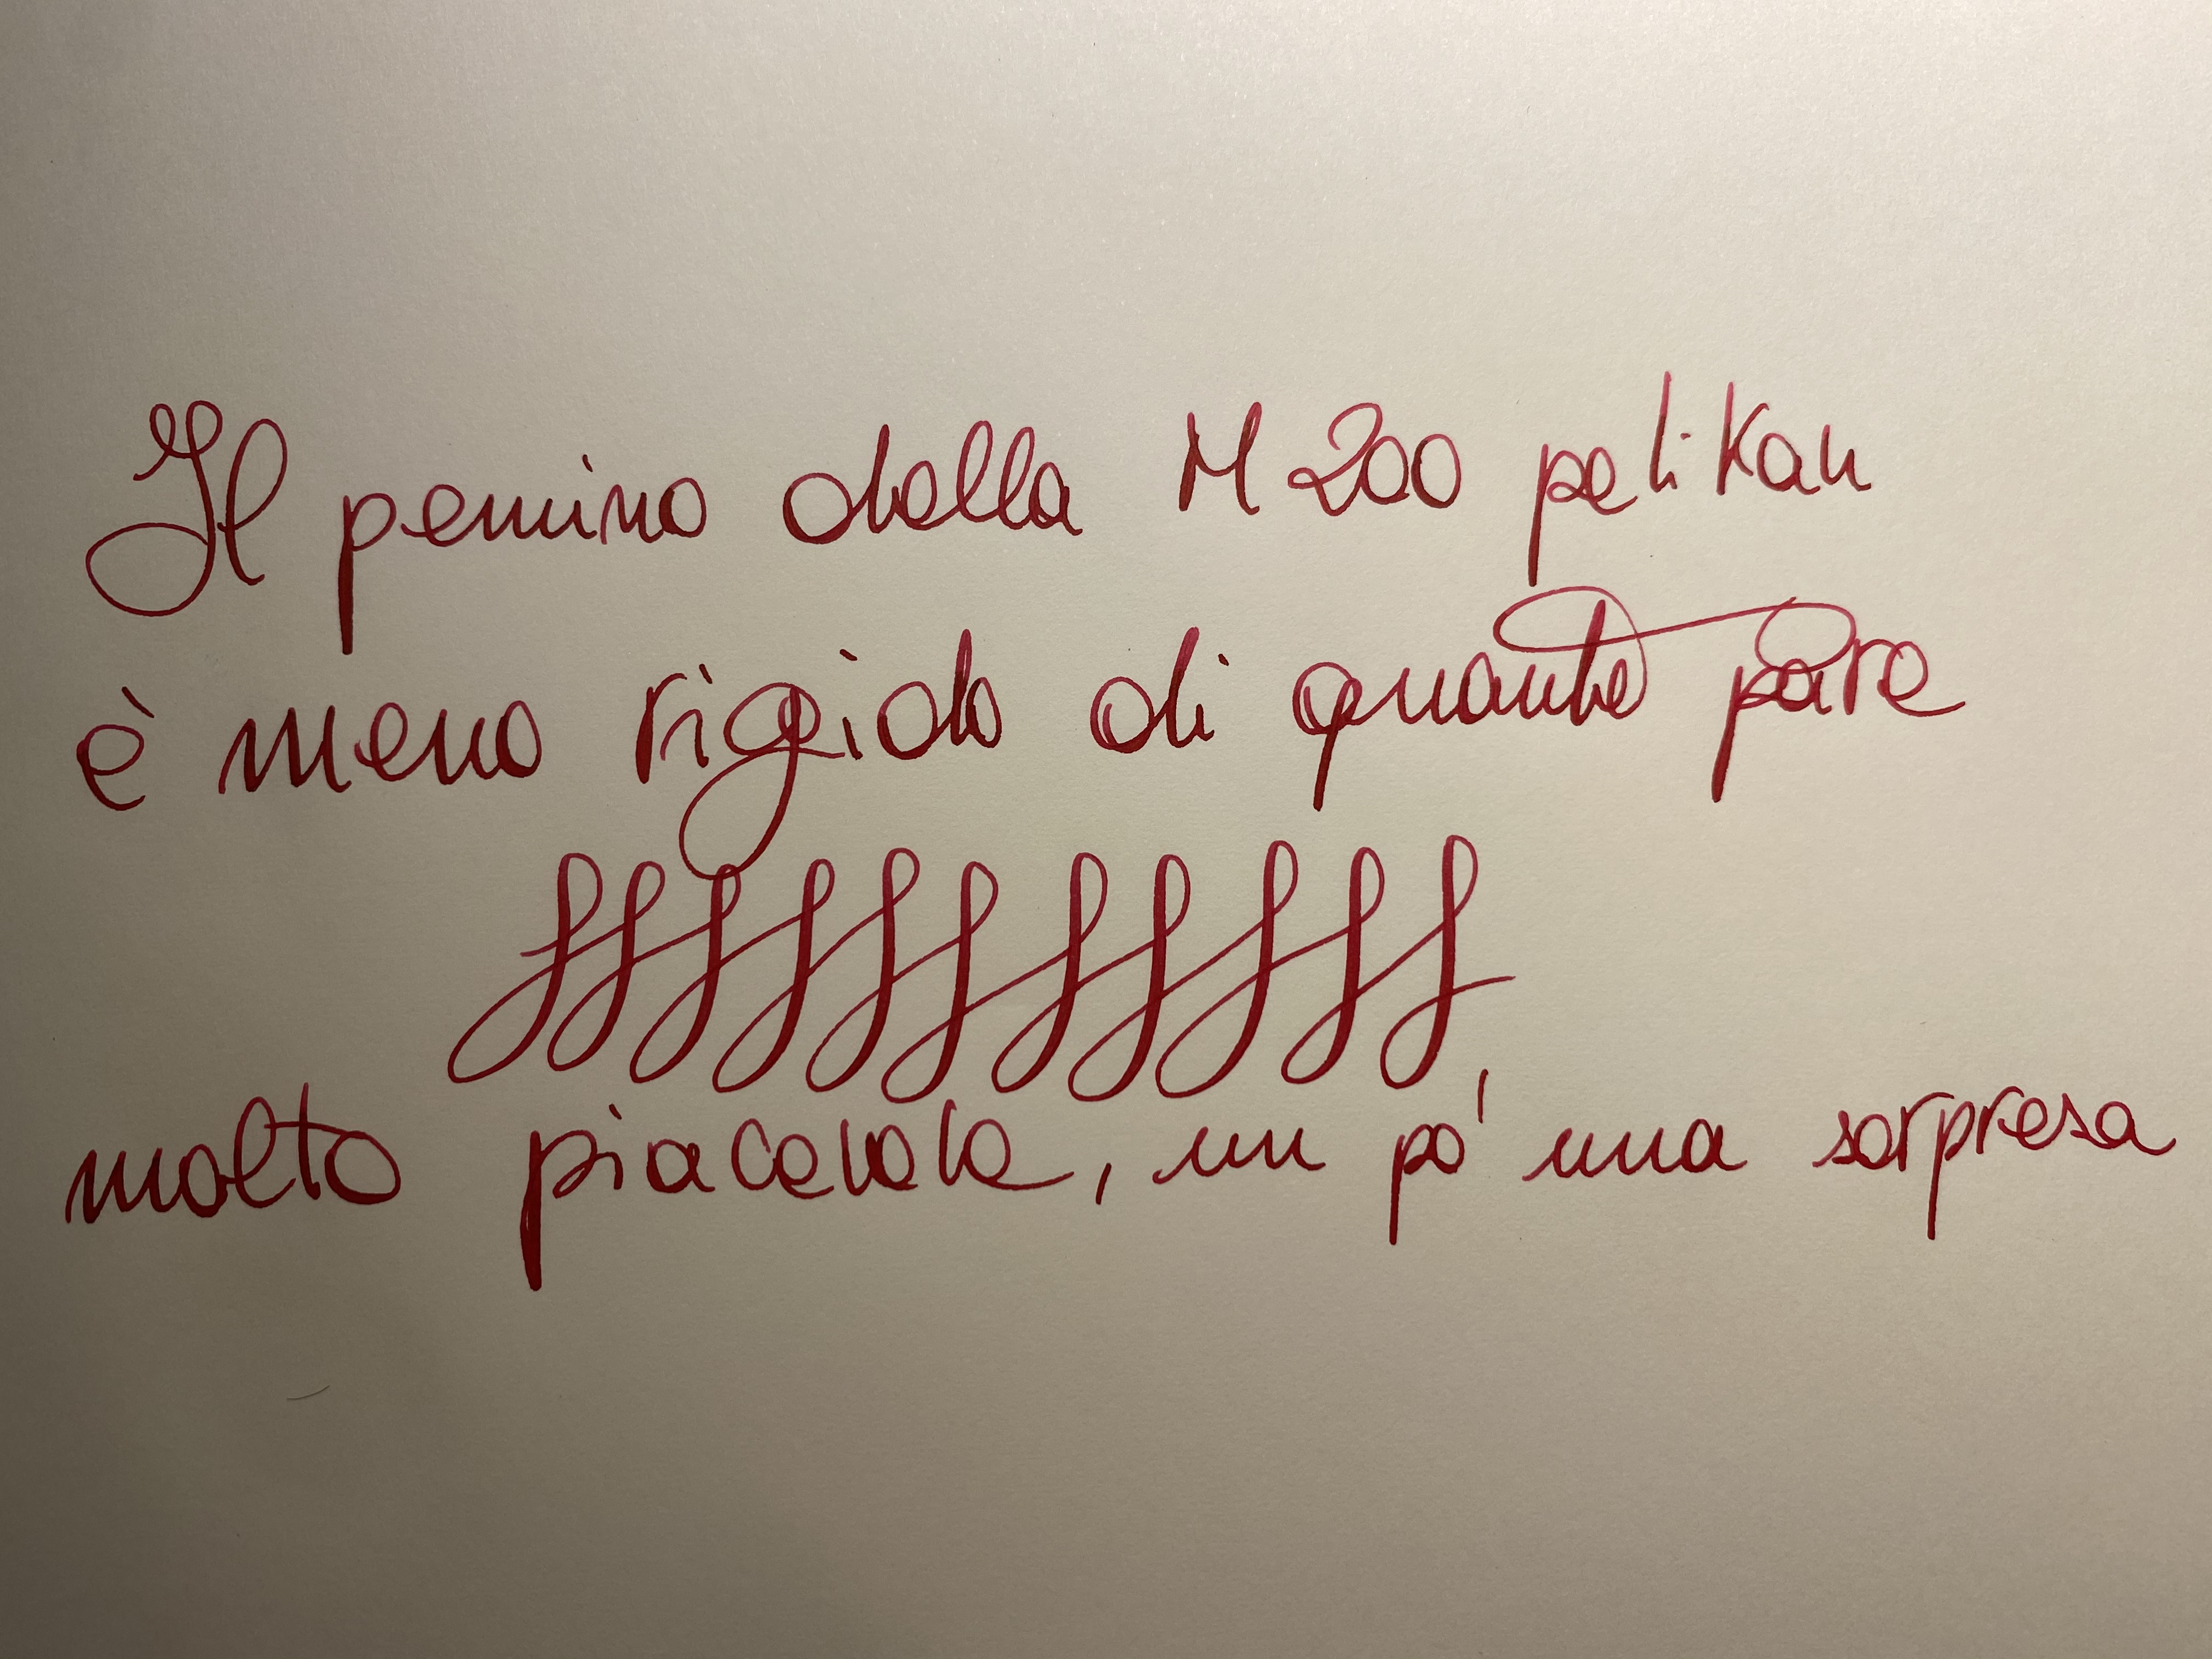 Il pennino della M200 pelikan
è meno rigido di quanto pare
fffffffffff
molto piacevole, un po' una sorpresa